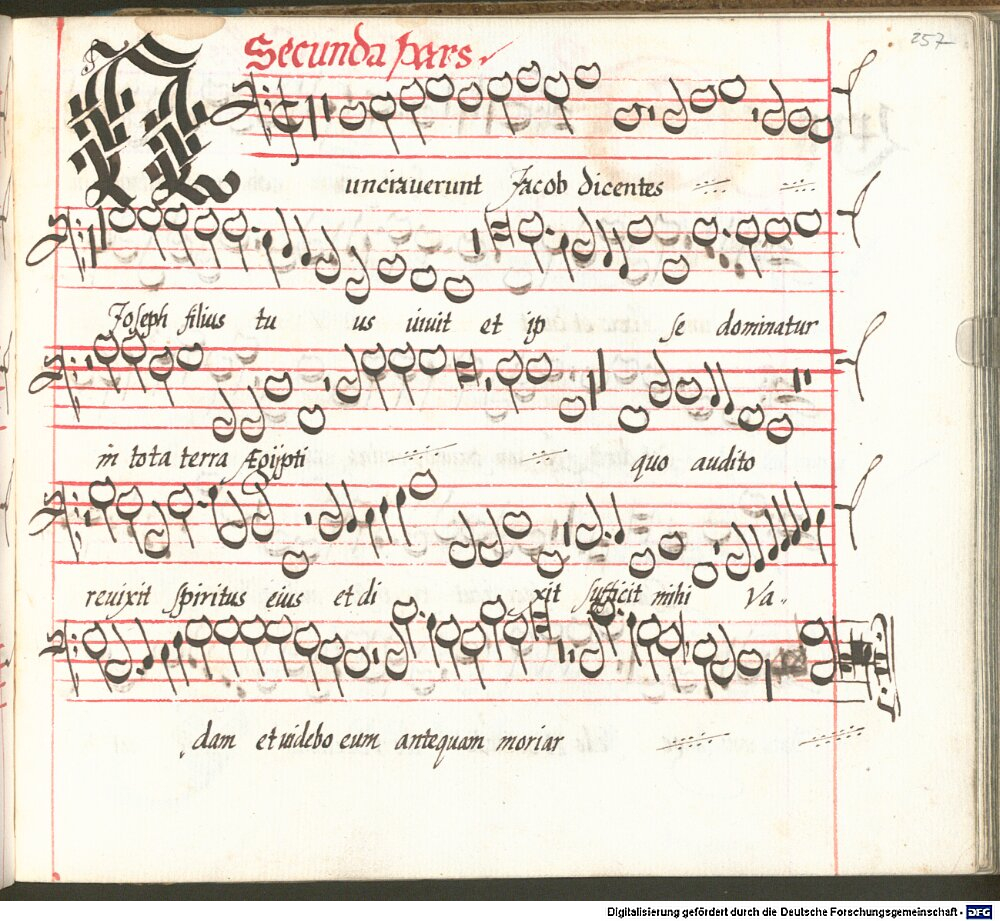 257
Secunda pars.
Nunciauerunt Jacob dicentes
Joseph filius tu us uiuit et ip se dominatur
in tota terra Ægijpti quo audito
reuixit spiritus eius et di xit sufficit mihi Va..
dam et uidebo eum antequam moriar
Digitalisierung gefördert durch die Deutsche Forschungsgemeinschaft - DFG